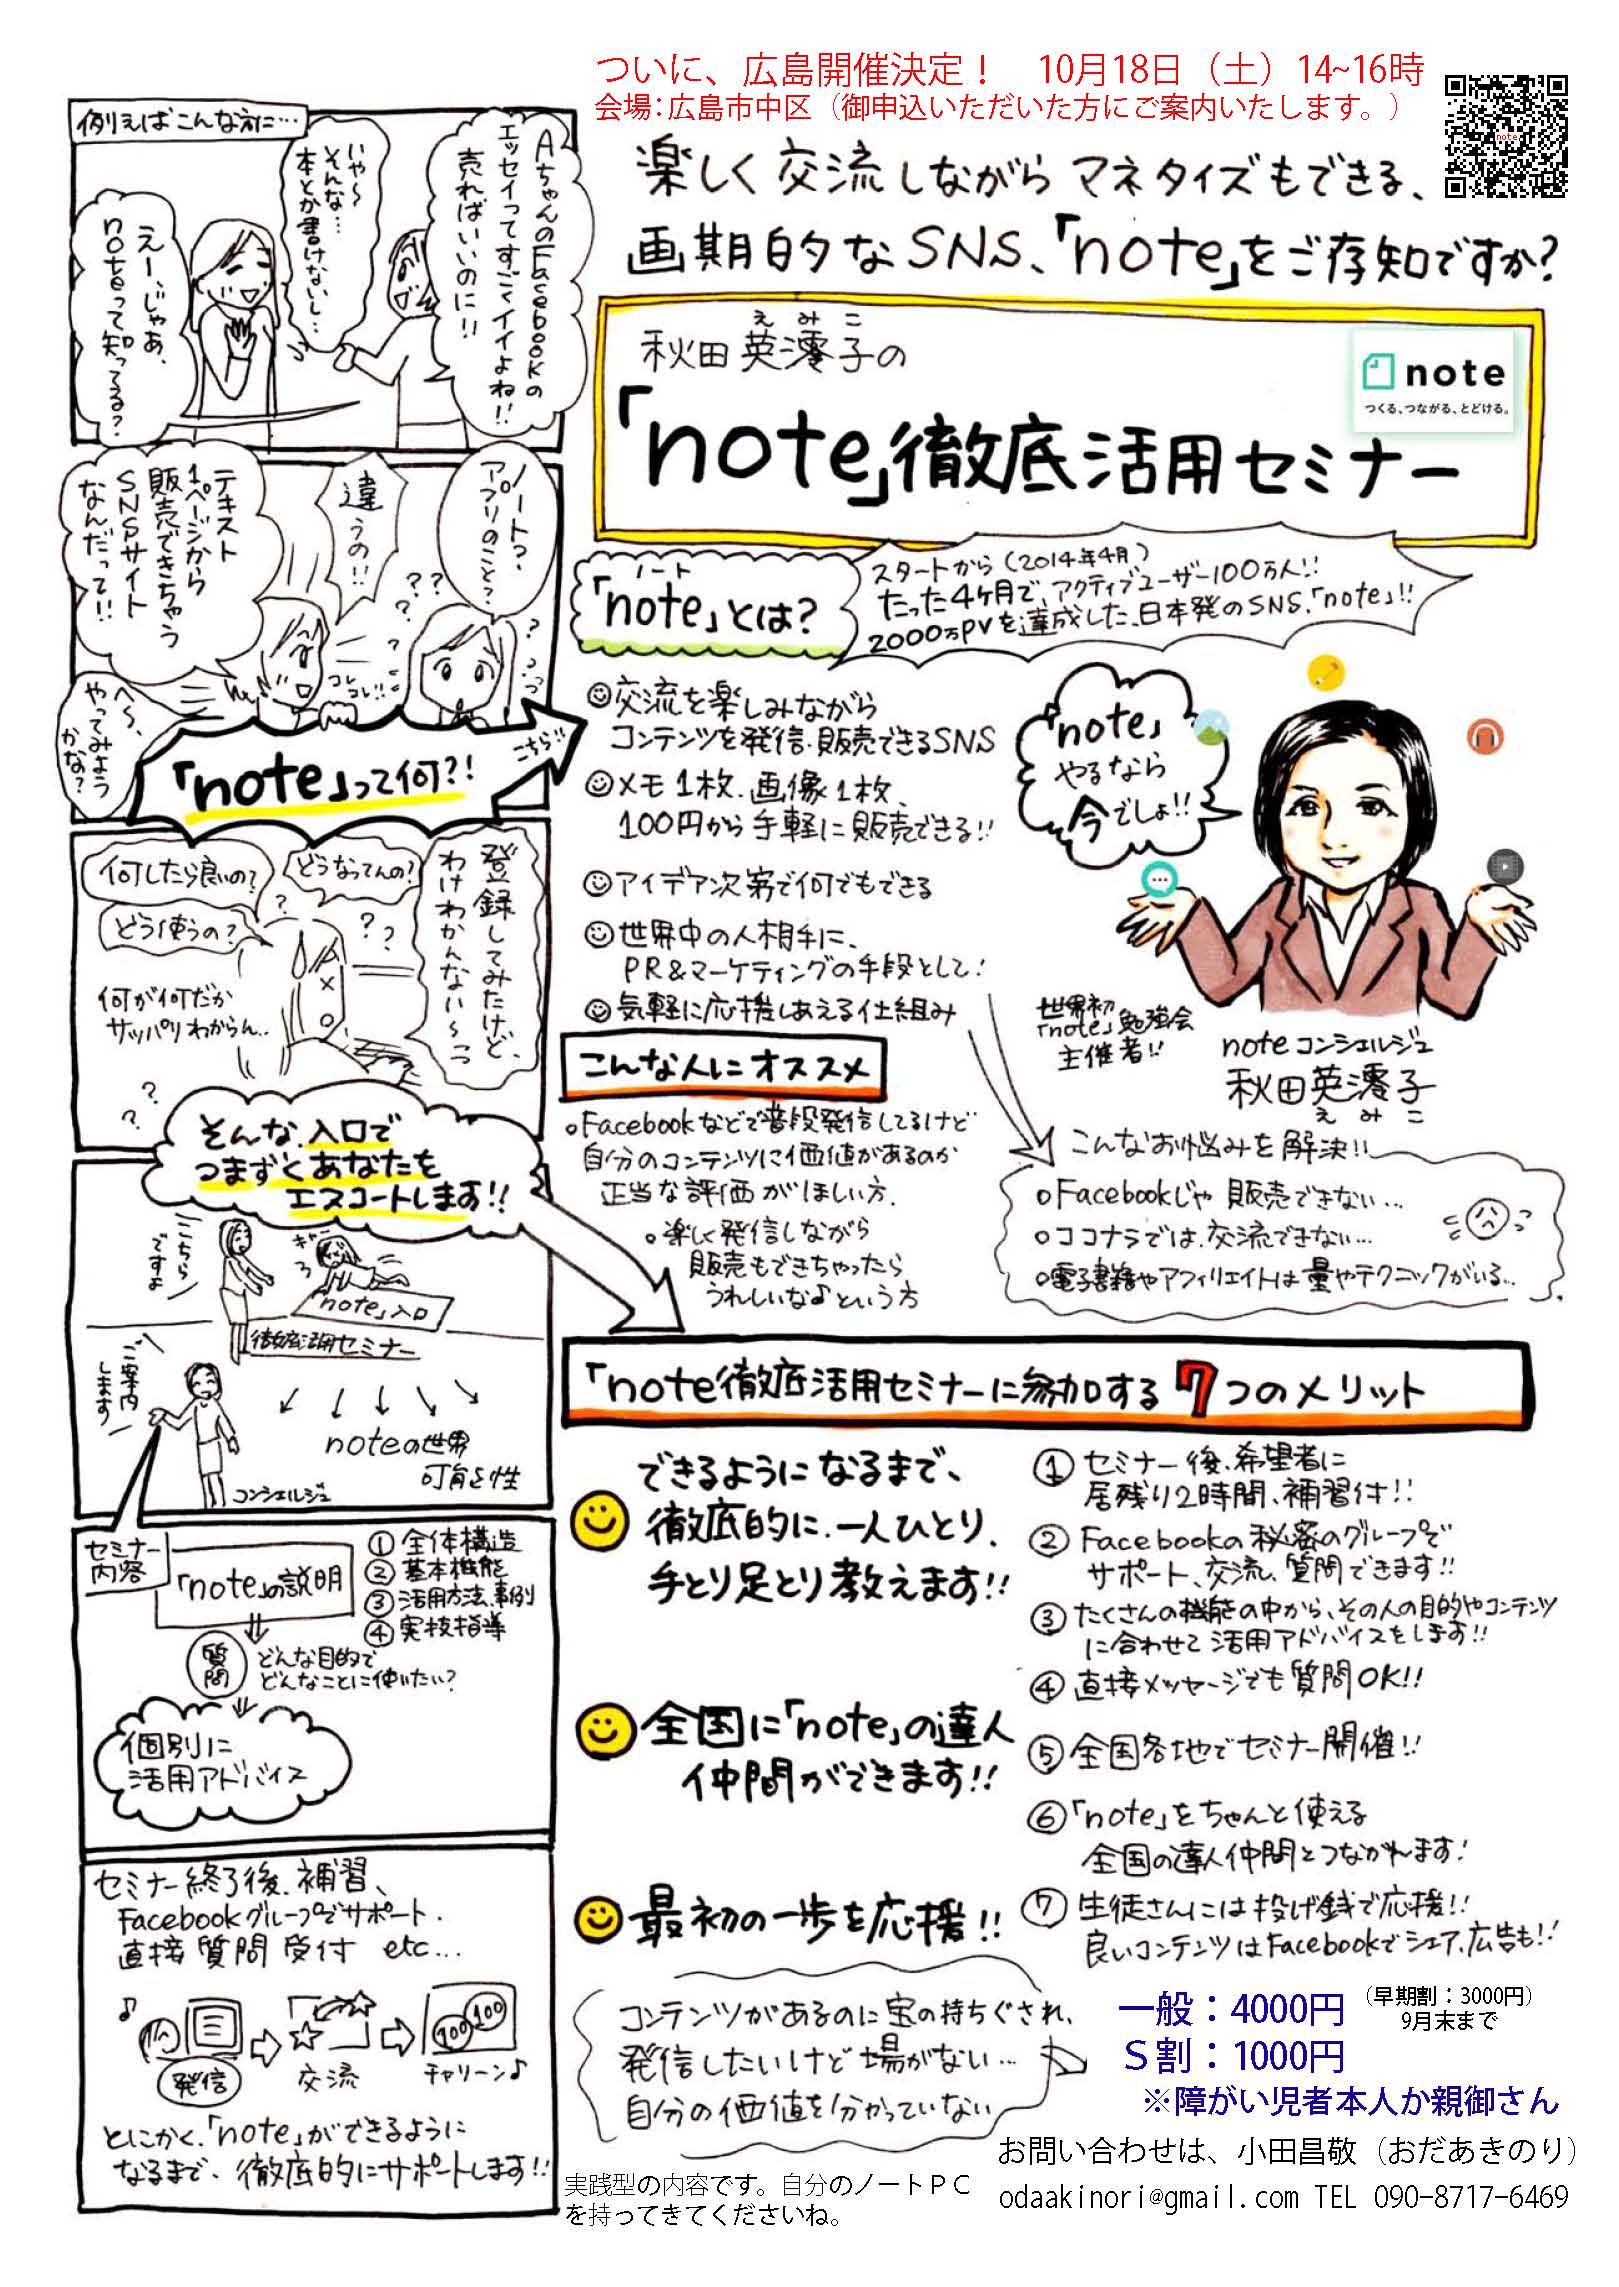 ついに、広島開催決定！　10月18日（土）14~16時
会場：広島市中区（御申込いただいた方にご案内いたします。）
note
楽しく交流しながらマネタイズもできる、
画期的なSNS、「note」をご存知ですか?
えみこ
秋田英澪子の
「note」徹底活用セミナー
note
つくる、つながる、とどける。
例えばこんな方に…
Aちゃんのfacebookの
エッセイってすごくイイよね!!
売ればいいのに!!
いや〜
そんな…
本とか書けないし…
えー、じゃあ、
noteって知ってる?
ノート?
アプリのこと?
違うの!!
テキスト
1ページから
販売できちゃう
SNSサイト
なんだって!!
コレコレ!!
へ〜、
やってみよう
かな?
「note」って何?!
こちら!!
登録してみたけど、
わけわかんない〜
どうなってんの?
何したら良いの?
どう使うの?
何が何だか
サッパリわからん..
そんな入口で
つまずくあなたを
エスコートします!!
こちら
ですよ
「note」入口
徹底活用セミナー
ご案内
します
noteの世界
可能性
コンシェルジュ
セミナー
内容
「note」の説明
①全体構造
②基本機能
③活用方法、事例
④実技指導
質問
どんな目的で
どんなことに使いたい?
個別に
活用アドバイス
セミナー終了後、補習、
Facebookグループでサポート.
直接質問受付 etc...
発信
交流
100 100
チャリーン♪
とにかく、「note」ができるように
なるまで、徹底的にサポートします!!
ノート
「note」とは?
スタートから(2014年4月)
たった4ヶ月で、アクティブユーザー100万人!!
2000万PVを達成した、日本発のSNS、「note」!!
交流を楽しみながら
コンテンツを発信・販売できるSNS
メモ1枚、画像1枚、
100円から手軽に販売できる!!
アイデア次第で何でもできる
世界中の人相手に、
PR&マーケティングの手段として!
気軽に応援しあえる仕組み
「note」
やるなら
今でしょ!!
世界初
「note」勉強会
主催者!!
noteコンシェルジュ
秋田英澪子
えみこ
こんな人にオススメ
Facebookなどで普段発信してるけど
自分のコンテンツに価値があるのか
正当な評価がほしい方.
楽しく発信しながら
販売もできちゃったら
うれしいな♪という方
こんなお悩みを解決!!
Facebookじゃ販売できない...
ココナラでは、交流できない...
電子書籍やアフィリエイトは量やテクニックがいる..
「note徹底活用セミナーに参加する7つのメリット
できるようになるまで、
徹底的に、一人ひとり、
手とり足とり教えます!!
全国に「note」の達人
仲間ができます!!
最初の一歩を応援!!
①セミナー後、希望者に
居残り2時間、補習付!!
②Facebookの秘密のグループで
サポート、交流、質問できます!!
③たくさんの機能の中から、その人の目的やコンテンツ
に合わせて活用アドバイスをします!!
④直接メッセージでも質問OK!!
⑤全国各地でセミナー開催!!
⑥「note」をちゃんと使える
全国の達人仲間とつながれます!
⑦生徒さんには投げ銭で応援!!
良いコンテンツはFacebookでシェア、広告も!!
コンテンツがあるのに宝の持ちぐされ、
発信したいけど場がない...
自分の価値を分かっていない
一般：4000円（早期割：3000円）
9月末まで
Ｓ割：1000円
※障がい児者本人か親御さん
お問い合わせは、小田昌敬（おだあきのり）
odaakinori@gmail.com TEL 090-8717-6469
実践型の内容です。自分のノートＰＣ
を持ってきてくださいね。